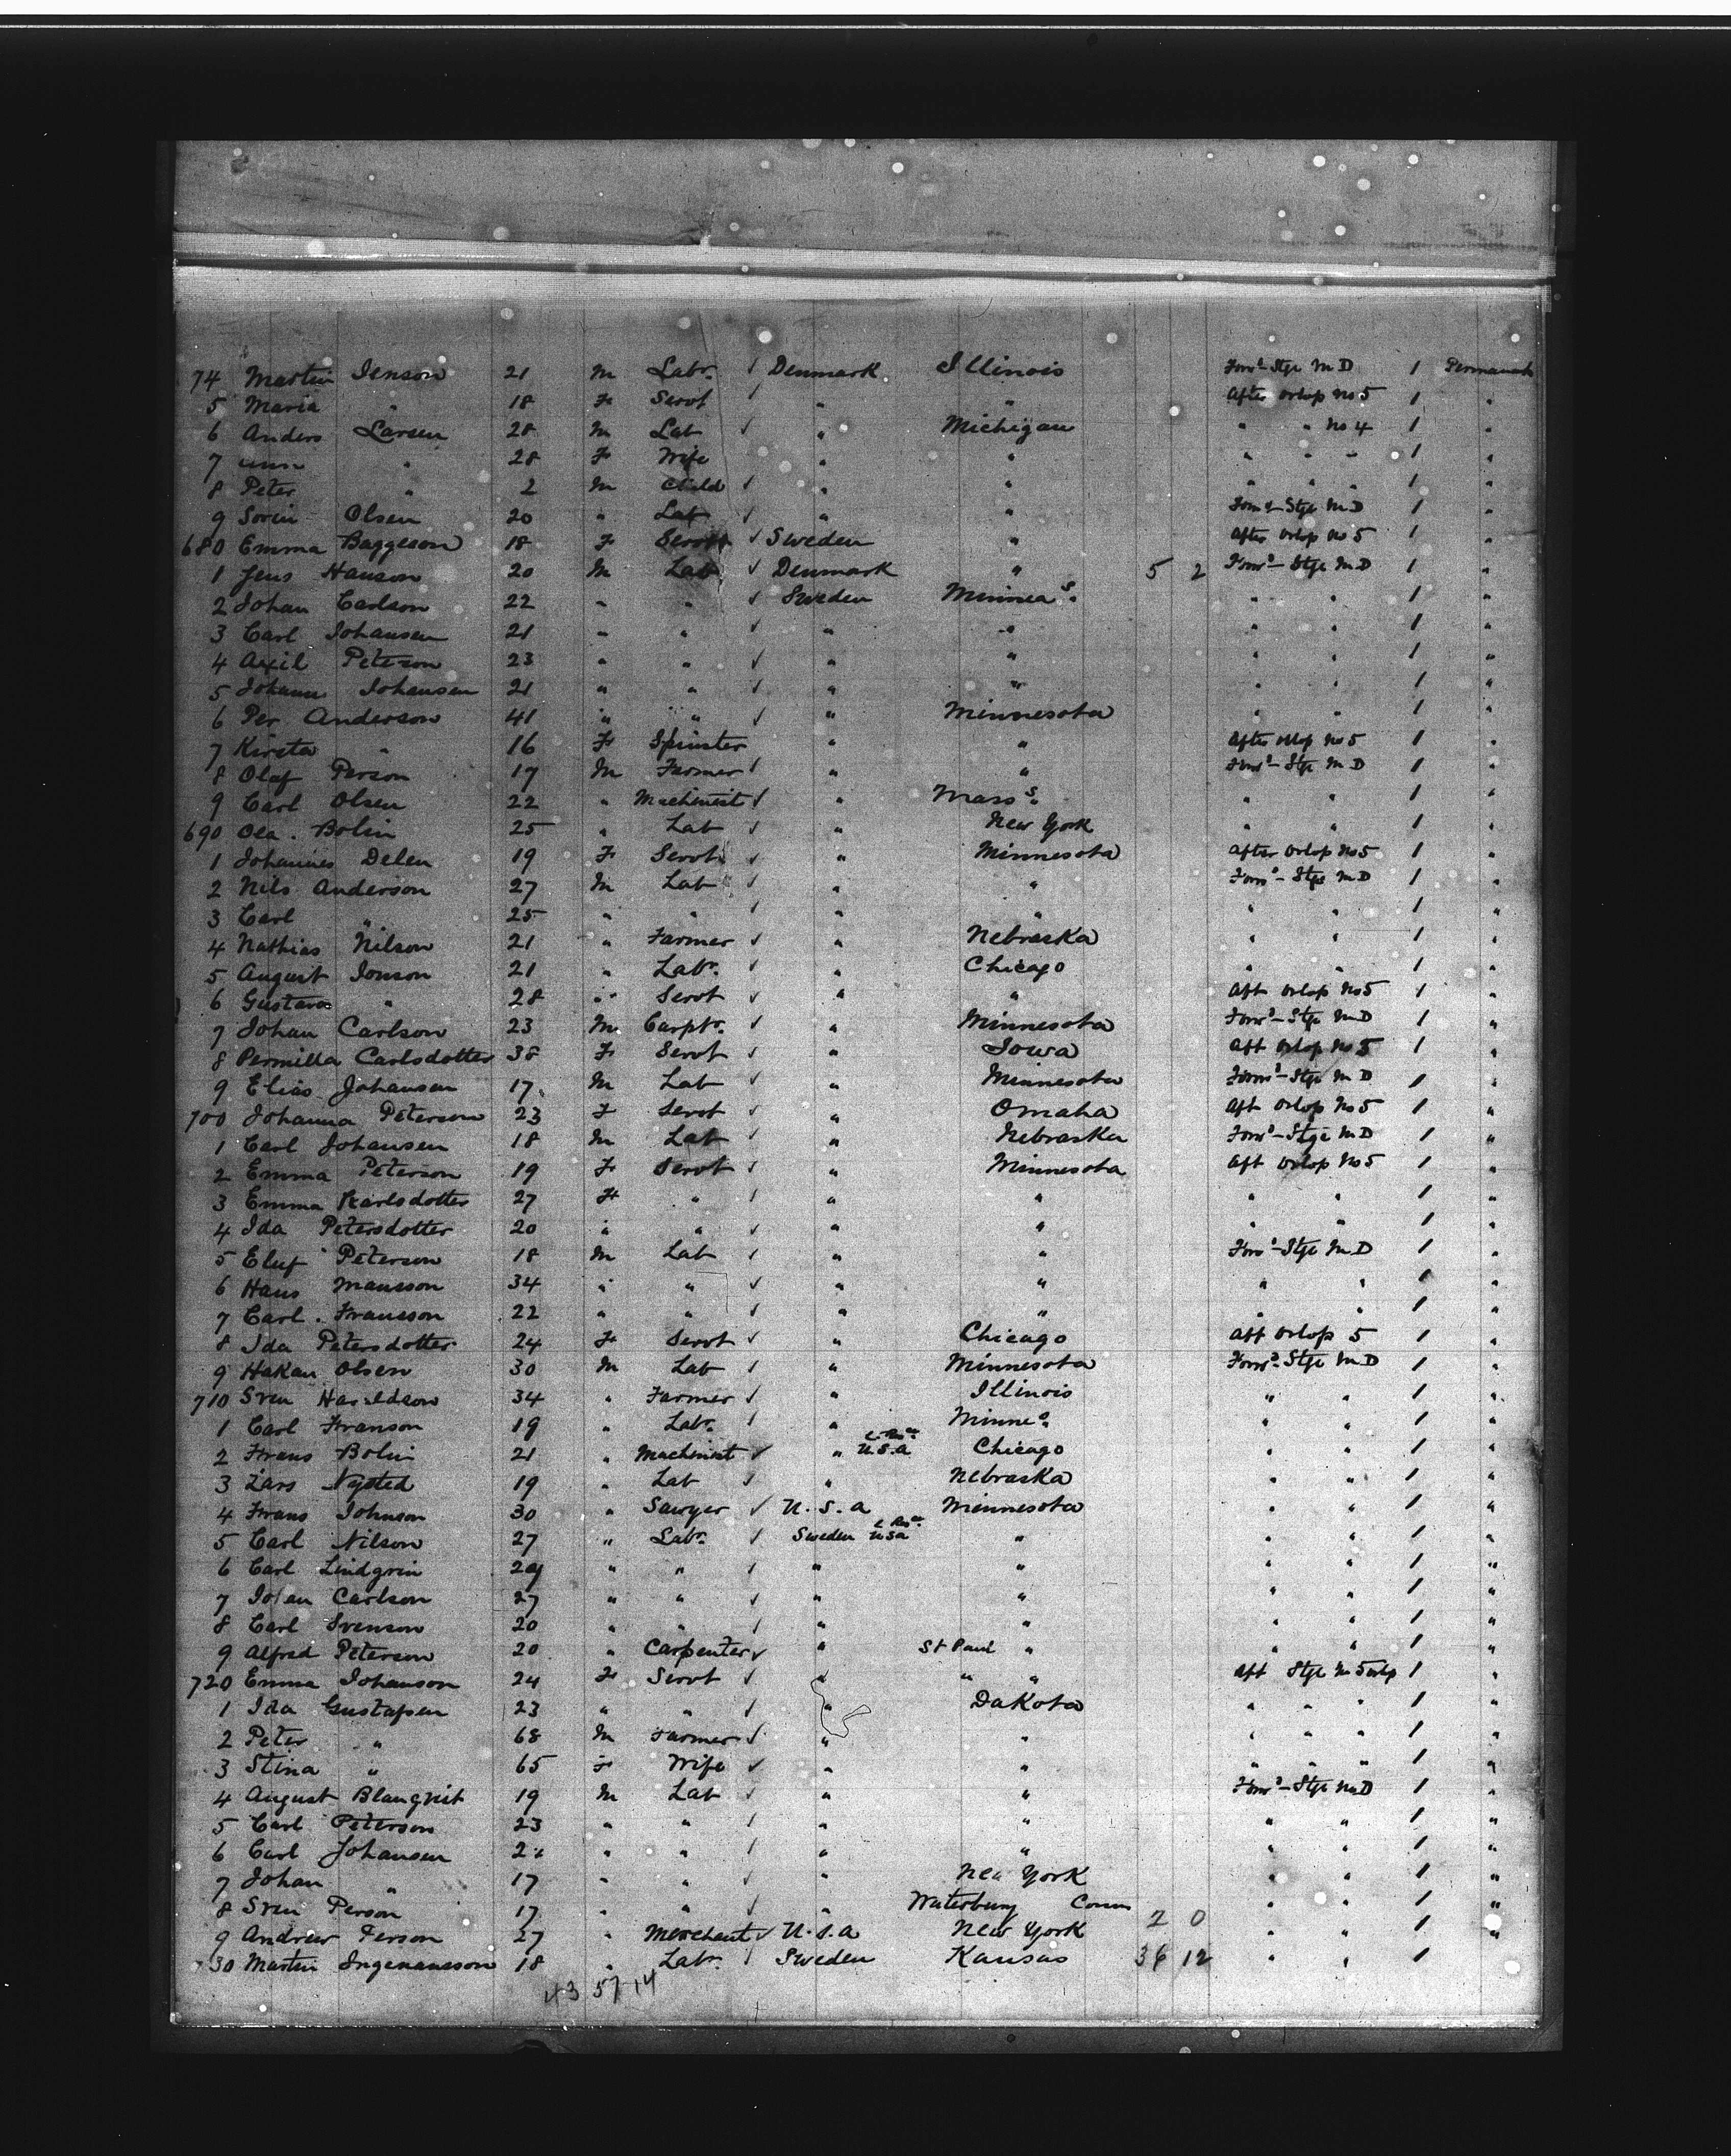 74 Martin Jenson 21 M Labr. ✓ Denmark Illinois Forwd Stge M D 1 Permanent
5 Maria " 18 F Servt " " After Orlop No 5 1 "
6 Anders Larsen 28 M Lab ✓ " Michigan " " No 4 1 "
7 Ann " 28 F Wife " " " " " 1 "
8 Peter " 2 M Child ✓ " " " " " 1 "
9 Sorin Olsen 20 " Lab ✓ " " Forwd Stge M D 1 "
680 Emma Baggeson 18 F Servt ✓ Sweden " After Orlop No 5 1 "
1 Jens Hanson 20 M Lab ✓ Denmark " 5 2 Forwd Stge M D 1 "
2 Johan Carlson 22 " " ✓ Sweden Minnea s. " " 1 "
3 Carl Johansen 21 " " ✓ " " " " 1 "
4 Axil Peterson 23 " " ✓ " " " " 1 "
5 Johann Johansen 21 " " ✓ " " " " 1 "
6 Per Anderson 41 " " ✓ " Minnesota " " 1 "
7 Kirsta " 16 F Spinster " " After Orlop No 5 1 "
8 Olaf Person 17 M Farmer ✓ " " Forwd Stge M D 1 "
9 Carl Olsen 22 " Machinist ✓ " Mass s. " " 1 "
690 Ola. Bolin 25 " Lab ✓ " New York " " 1 "
1 Johannes Delen 19 F Servt ✓ " Minnesota After Orlop No 5 1 "
2 Nils Anderson 27 M Lab ✓ " " Forwd Stge M D 1 "
3 Carl " 25 " " ✓ " " " " 1 "
4 Nathias Nilson 21 " Farmer ✓ " Nebraska " " 1 "
5 August Jonson 21 " Labr. ✓ " Chicago " " 1 "
6 Gustava " 28 " Servt ✓ " " Aft Orlop No 5 1 "
7 Johan Carlson 23 M. Carptr. ✓ " Minnesota Forwd Stge M D 1 "
8 Pernilla Carlsdotter 38 F Servt ✓ " Iowa Aft Orlop No 5 1 "
9 Elias Johansen 17 M Lab ✓ " Minnesota Forwd Stge M D 1 "
700 Johanna Peterson 23 F Servt ✓ " Omaha Aft Orlop No 5 1 "
1 Carl Johansen 18 M Lab ✓ " Nebraska Forwd Stge M D 1 "
2 Emma Peterson 19 F Servt ✓ " Minnesota Aft Orlop No 5 1 "
3 Emma Karlsdotter 27 F " ✓ " " " " 1 "
4 Ida Petersdotter 20 " " ✓ " " " " 1 "
5 Eluf Peterson 18 M Lab ✓ " " Forwd Stge M D 1 "
6 Hans Mansson 34 " " ✓ " " " " 1 "
7 Carl. Fransson 22 " " ✓ " " " " 1 "
8 Ida Petersdotter 24 F Servt ✓ " Chicago Aft Orlop 5 1 "
9 Hakan Olsen 30 M Lab ✓ " Minnesota Forwd Stge M D 1 "
710 Sven Haraldson 34 " Farmer ✓ " Illinois " " 1 "
1 Carl Franson 19 " Labr. ✓ " Minne a. " " 1 "
2 Frans Bolin 21 " Machinist ✓ " U.S.A Chicago " " 1 "
3 Lars Nysted 19 " Lab ✓ " Nebraska " " 1 "
4 Frans Johnson 30 " Sawyer ✓ U.S.A Minnesota " " 1 "
5 Carl Nilson 27 " Labr. ✓ Sweden USA " " " 1 "
6 Carl Lindgrin 29 " " ✓ " " " " 1 "
7 Johan Carlson 27 " " ✓ " " " " 1 "
8 Carl Svenson 20 " " ✓ " " " " 1 "
9 Alfred Peterson 20 " Carpenter ✓ " St Paul " " " 1 "
720 Emma Johanson 24 F Servt ✓ " " " Aft Stge No 5 orlop 1 "
1 Ida Gustafsen 23 " " ✓ " Dakota " " " 1 "
2 Peter " 68 M Farmer ✓ " " " " " 1 "
3 Stina " 65 F Wife ✓ " " " " " 1 "
4 August Blanqvist 19 M Lab ✓ " " Forwd Stge M D 1 "
5 Carl Peterson 23 " " ✓ " " " " 1 "
6 Carl Johansen " " ✓ " " " " 1 "
7 Johan " 17 " " ✓ " New York " " 1 "
8 Sven Person 17 " " ✓ " Waterbury Conn " " 1 "
9 Andrew Ferson 27 " Merchant ✓ U.S.A New York 2 0 " " 1 "
730 Martin Ingemansson 18 " Labr. ✓ Sweden Kansas 36 12 " " 1
43 57 14